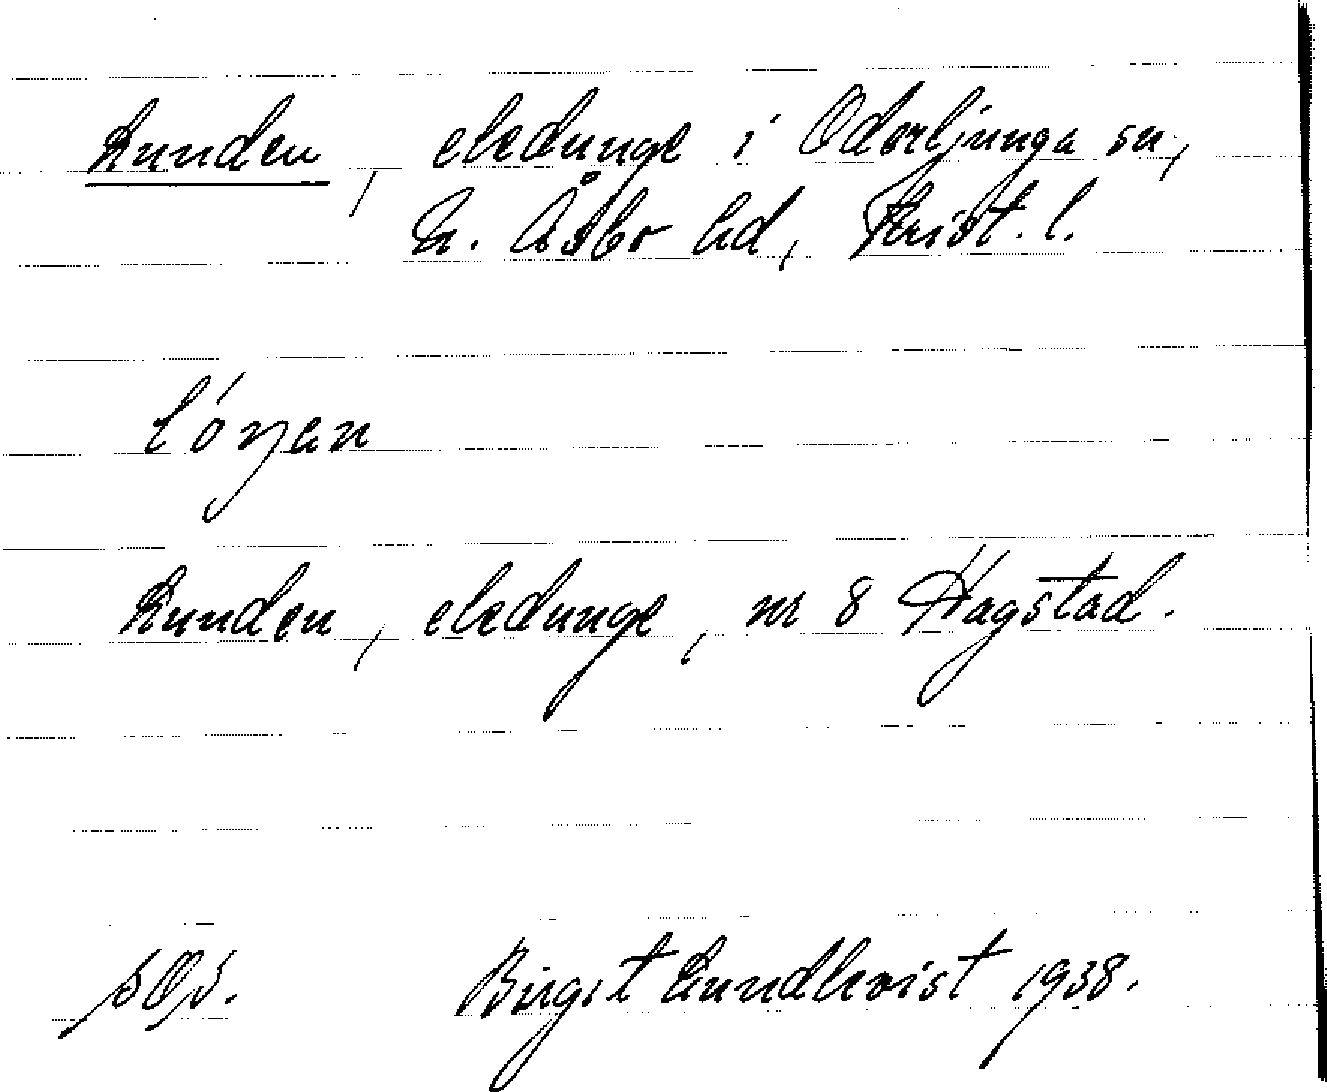 Lunden, ekdunge i Oderljunga sn,
N. Åsbo hd, Krist. l.
Lunden, ekdunge, nr 8 Hagstad.
Birgit Lundkvist 1938.